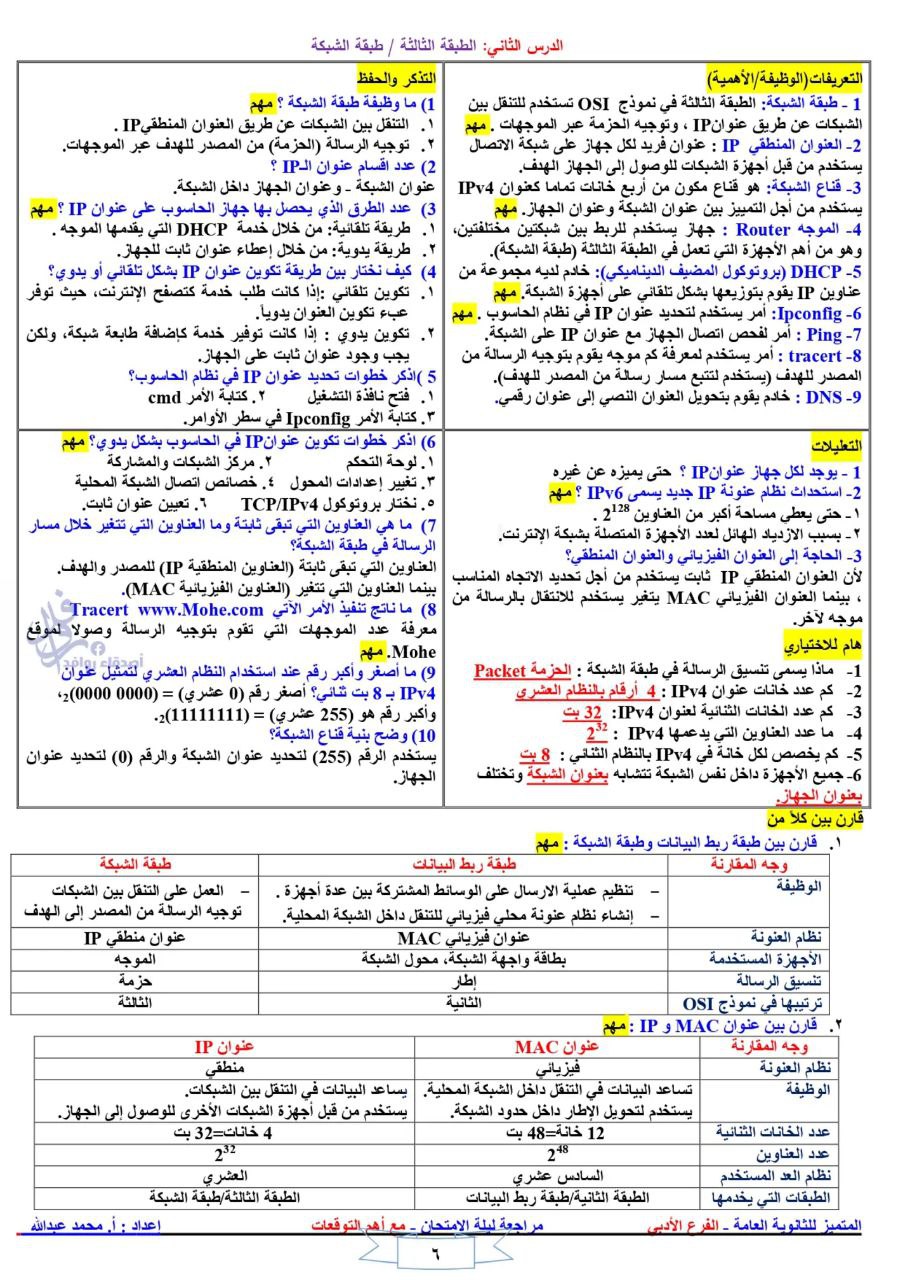 الدرس الثاني: الطبقة الثالثة / طبقة الشبكة
التعريفات(الوظيفة/الأهمية)
1 - طبقة الشبكة: الطبقة الثالثة في نموذج OSI تستخدم للتنقل بين
الشبكات عن طريق عنوانIP ، وتوجيه الحزمة عبر الموجهات . مهم
2- العنوان المنطقي IP : عنوان فريد لكل جهاز على شبكة الاتصال
يستخدم من قبل أجهزة الشبكات للوصول إلى الجهاز الهدف.
3- قناع الشبكة: هو قناع مكون من أربع خانات تماما كعنوان IPv4
يستخدم من أجل التمييز بين عنوان الشبكة وعنوان الجهاز. مهم
4- الموجه Router : جهاز يستخدم للربط بين شبكتين مختلفتين،
وهو من أهم الأجهزة التي تعمل في الطبقة الثالثة (طبقة الشبكة).
5- DHCP (بروتوكول المضيف الديناميكي): خادم لديه مجموعة من
عناوين IP يقوم بتوزيعها بشكل تلقائي على أجهزة الشبكة. مهم
6- Ipconfig: أمر يستخدم لتحديد عنوان IP في نظام الحاسوب . مهم
7- Ping : أمر لفحص اتصال الجهاز مع عنوان IP على الشبكة.
8- tracert : أمر يستخدم لمعرفة كم موجه يقوم بتوجيه الرسالة من
المصدر للهدف (يستخدم لتتبع مسار رسالة من المصدر للهدف).
9- DNS : خادم يقوم بتحويل العنوان النصي إلى عنوان رقمي.
التذكر والحفظ
1) ما وظيفة طبقة الشبكة ؟ مهم
١. التنقل بين الشبكات عن طريق العنوان المنطقيIP .
٢. توجيه الرسالة (الحزمة) من المصدر للهدف عبر الموجهات.
2) عدد اقسام عنوان الـIP ؟
عنوان الشبكة - وعنوان الجهاز داخل الشبكة.
3) عدد الطرق الذي يحصل بها جهاز الحاسوب على عنوان IP ؟ مهم
١. طريقة تلقائية: من خلال خدمة DHCP التي يقدمها الموجه .
٢. طريقة يدوية: من خلال إعطاء عنوان ثابت للجهاز.
4) كيف نختار بين طريقة تكوين عنوان IP بشكل تلقائي أو يدوي؟
١. تكوين تلقائي :إذا كانت طلب خدمة كتصفح الإنترنت، حيث توفر
عبء تكوين العنوان يدوياً.
٢. تكوين يدوي : إذا كانت توفير خدمة كإضافة طابعة شبكة، ولكن
يجب وجود عنوان ثابت على الجهاز.
5 )اذكر خطوات تحديد عنوان IP في نظام الحاسوب؟
١. فتح نافذة التشغيل ٢. كتابة الأمر cmd
٣. كتابة الأمر Ipconfig في سطر الأوامر.
التعليلات
1 - يوجد لكل جهاز عنوانIP ؟ حتى يميزه عن غيره
2- استحداث نظام عنونة IP جديد يسمى IPv6 ؟ مهم
١- حتى يعطي مساحة أكبر من العناوين 2128 .
٢- بسبب الازدياد الهائل لعدد الأجهزة المتصلة بشبكة الإنترنت.
3- الحاجة إلى العنوان الفيزيائي والعنوان المنطقي؟
لأن العنوان المنطقي IP ثابت يستخدم من أجل تحديد الاتجاه المناسب
، بينما العنوان الفيزيائي MAC يتغير يستخدم للانتقال بالرسالة من
موجه لآخر.
هام للاختياري
1- ماذا يسمى تنسيق الرسالة في طبقة الشبكة : الحزمة Packet
2- كم عدد خانات عنوان IPv4 : 4 أرقام بالنظام العشري
3- كم عدد الخانات الثنائية لعنوان IPv4: 32 بت
4- ما عدد العناوين التي يدعمها IPv4 : 232
5- كم يخصص لكل خانة في IPv4 بالنظام الثنائي : 8 بت
6- جميع الأجهزة داخل نفس الشبكة تتشابه بعنوان الشبكة وتختلف
بعنوان الجهاز.
6) اذكر خطوات تكوين عنوانIP في الحاسوب بشكل يدوي؟ مهم
١. لوحة التحكم ٢. مركز الشبكات والمشاركة
٣. تغيير إعدادات المحول ٤. خصائص اتصال الشبكة المحلية
٥. نختار بروتوكول TCP/IPv4 ٦. تعيين عنوان ثابت.
7) ما هي العناوين التي تبقى ثابتة وما العناوين التي تتغير خلال مسار
الرسالة في طبقة الشبكة؟
العناوين التي تبقى ثابتة (العناوين المنطقية IP) للمصدر والهدف.
بينما العناوين التي تتغير (العناوين الفيزيائية MAC).
8) ما ناتج تنفيذ الأمر الآتي Tracert www.Mohe.com
معرفة عدد الموجهات التي تقوم بتوجيه الرسالة وصولا لموقع
Mohe. مهم
أصدقاء روافد
9) ما أصغر وأكبر رقم عند استخدام النظام العشري لتمثيل عنوان
IPv4 بـ 8 بت ثنائي؟ أصغر رقم (0 عشري) = (0000 0000)2،
وأكبر رقم هو (255 عشري) = (11111111)2.
10) وضح بنية قناع الشبكة؟
يستخدم الرقم (255) لتحديد عنوان الشبكة والرقم (0) لتحديد عنوان
الجهاز.
قارن بين كلاً من
١. قارن بين طبقة ربط البيانات وطبقة الشبكة : مهم
وجه المقارنة طبقة ربط البيانات طبقة الشبكة
الوظيفة – تنظيم عملية الارسال على الوسائط المشتركة بين عدة أجهزة . – العمل على التنقل بين الشبكات
– إنشاء نظام عنونة محلي فيزيائي للتنقل داخل الشبكة المحلية. توجيه الرسالة من المصدر إلى الهدف
نظام العنونة عنوان فيزيائي MAC عنوان منطقي IP
الأجهزة المستخدمة بطاقة واجهة الشبكة، محول الشبكة الموجه
تنسيق الرسالة إطار حزمة
ترتيبها في نموذج OSI الثانية الثالثة
٢. قارن بين عنوان MAC و IP : مهم
وجه المقارنة عنوان MAC عنوان IP
نظام العنونة فيزيائي منطقي
الوظيفة تساعد البيانات في التنقل داخل الشبكة المحلية. يساعد البيانات في التنقل بين الشبكات.
يستخدم لتحويل الإطار داخل حدود الشبكة. يستخدم من قبل أجهزة الشبكات الأخرى للوصول إلى الجهاز.
عدد الخانات الثنائية 12 خانة=48 بت 4 خانات=32 بت
عدد العناوين 248 232
نظام العد المستخدم السادس عشري العشري
الطبقات التي يخدمها الطبقة الثانية/طبقة ربط البيانات الطبقة الثالثة/طبقة الشبكة
المتميز للثانوية العامة - الفرع الأدبي مراجعة ليلة الامتحان - مع أهم التوقعات إعداد : أ. محمد عبدالله
٦